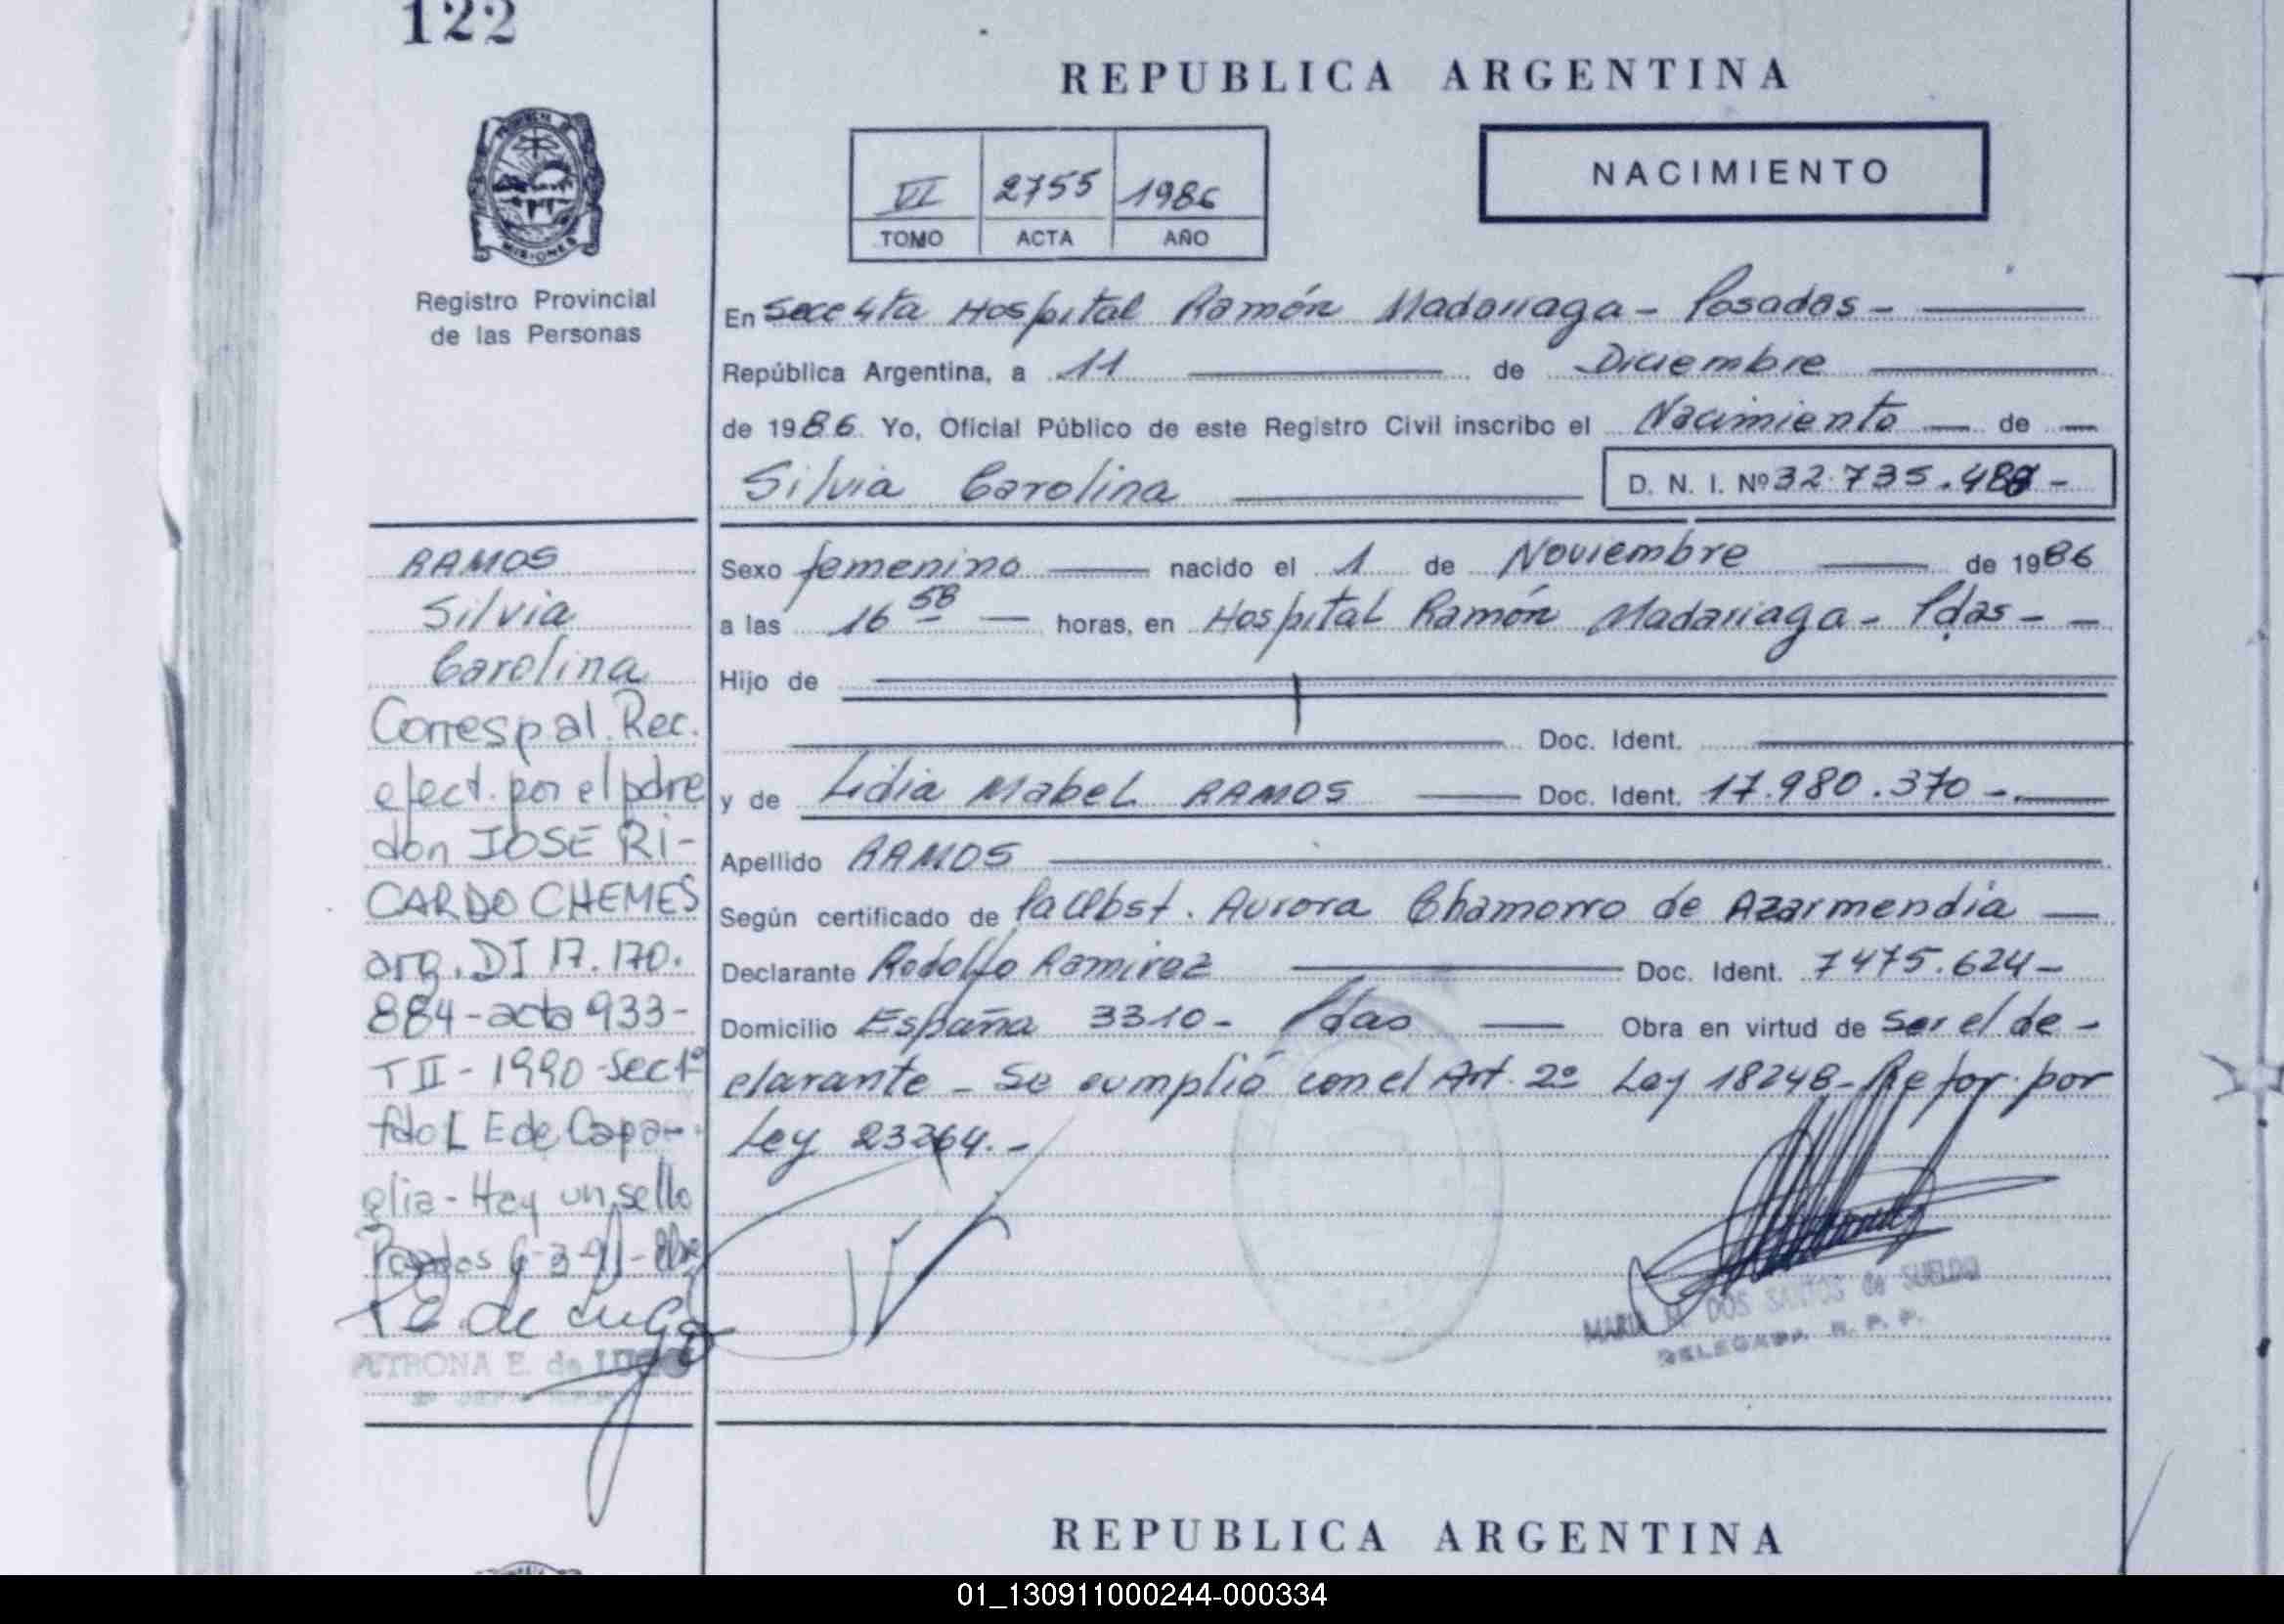 122
REPUBLICA ARGENTINA
VI 2755 1986
TOMO ACTA AÑO
NACIMIENTO
MISIONES
Registro Provincial
de las Personas
En Secc 4ta Hospital Ramón Madariaga - Posadas -
República Argentina, a 11 de Diciembre
de 1986. Yo, Oficial Público de este Registro Civil inscribo el Nacimiento de
Silvia Carolina
D. N. I. Nº 32.735.488 -
Sexo femenino nacido el 1 de Noviembre de 1986
a las 16 58 horas, en Hospital Ramón Madariaga - Pdas -
Hijo de
Doc. Ident.
y de Lidia Mabel RAMOS Doc. Ident. 17.980.370 -
Apellido RAMOS
Según certificado de Aurora Chamorro de Azarmendia
Declarante Rodolfo Ramirez Doc. Ident. 7475.624 -
Domicilio España 3310 - Pdas Obra en virtud de ser el de -
clarante - Se cumplió con el Art. 2º Ley 18248 - Refor. por
Ley 23264. -
MARIA DOS SANTOS de SUELDO
DELEGADA R. P. P.
RAMOS
Silvia
Carolina
Corresp al Rec.
efect. por el padre
don JOSE RI-
CARDO CHEMES
arg. DI 17.170.
884 - acta 933 -
T II - 1990 - Sec 1º
fdo L E de Capa-
glia - Hay un sello
Posadas 6-3-91 -
P E de Lugo
PETRONA E. de LUGO
REPUBLICA ARGENTINA
01_130911000244-000334